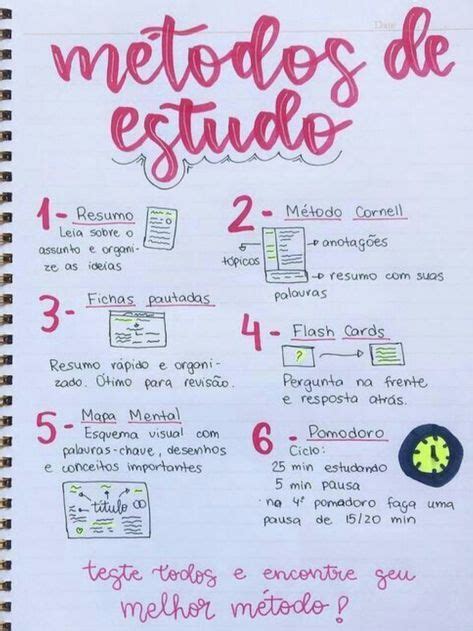 Date
métodos de
estudo
1- Resumo
Leia sobre o
assunto e organi-
ze as ideias
2- Método Cornell
anotações
tópicos
resumo com suas
palavras
3- Fichas pautadas
Resumo rápido e organi-
zado. Ótimo para revisão.
4- Flash Cards
?
Pergunta na frente
e resposta atrás.
5- Mapa Mental
Esquema visual com
palavras-chave, desenhos
e conceitos importantes
título
6- Pomodoro
Ciclo:
25 min estudando
5 min pausa
· na 4º pomadoro faça uma
pausa de 15/20 min
teste todos e encontre seu
melhor método!